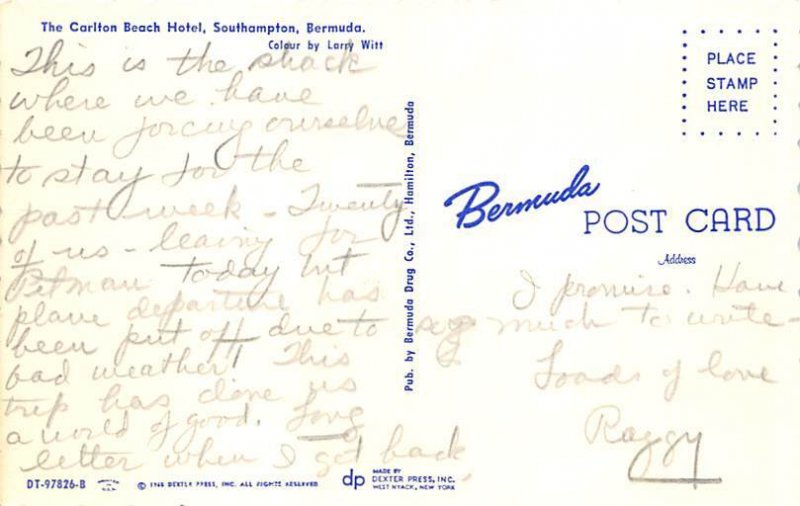 The Carlton Beach Hotel, Southampton, Bermuda.
Colour by Larry Witt
This is the shack
where we have
been forcing ourselves
to stay for the
past week - Twenty
of us - leaving for
Pitman today but
plane departure has
been put off due to
bad weather! This
trip has done us
a world of good. Long
letter when I get back
DT-97826-B
© 1965 DEXTER PRESS, INC. ALL RIGHTS RESERVED
dp
MADE BY
DEXTER PRESS, INC.
WEST NYACK, NEW YORK
Pub. by Bermuda Drug Co., Ltd., Hamilton, Bermuda
PLACE
STAMP
HERE
Bermuda
POST CARD
Address
I promise. Have
so much to write -
Loads of love